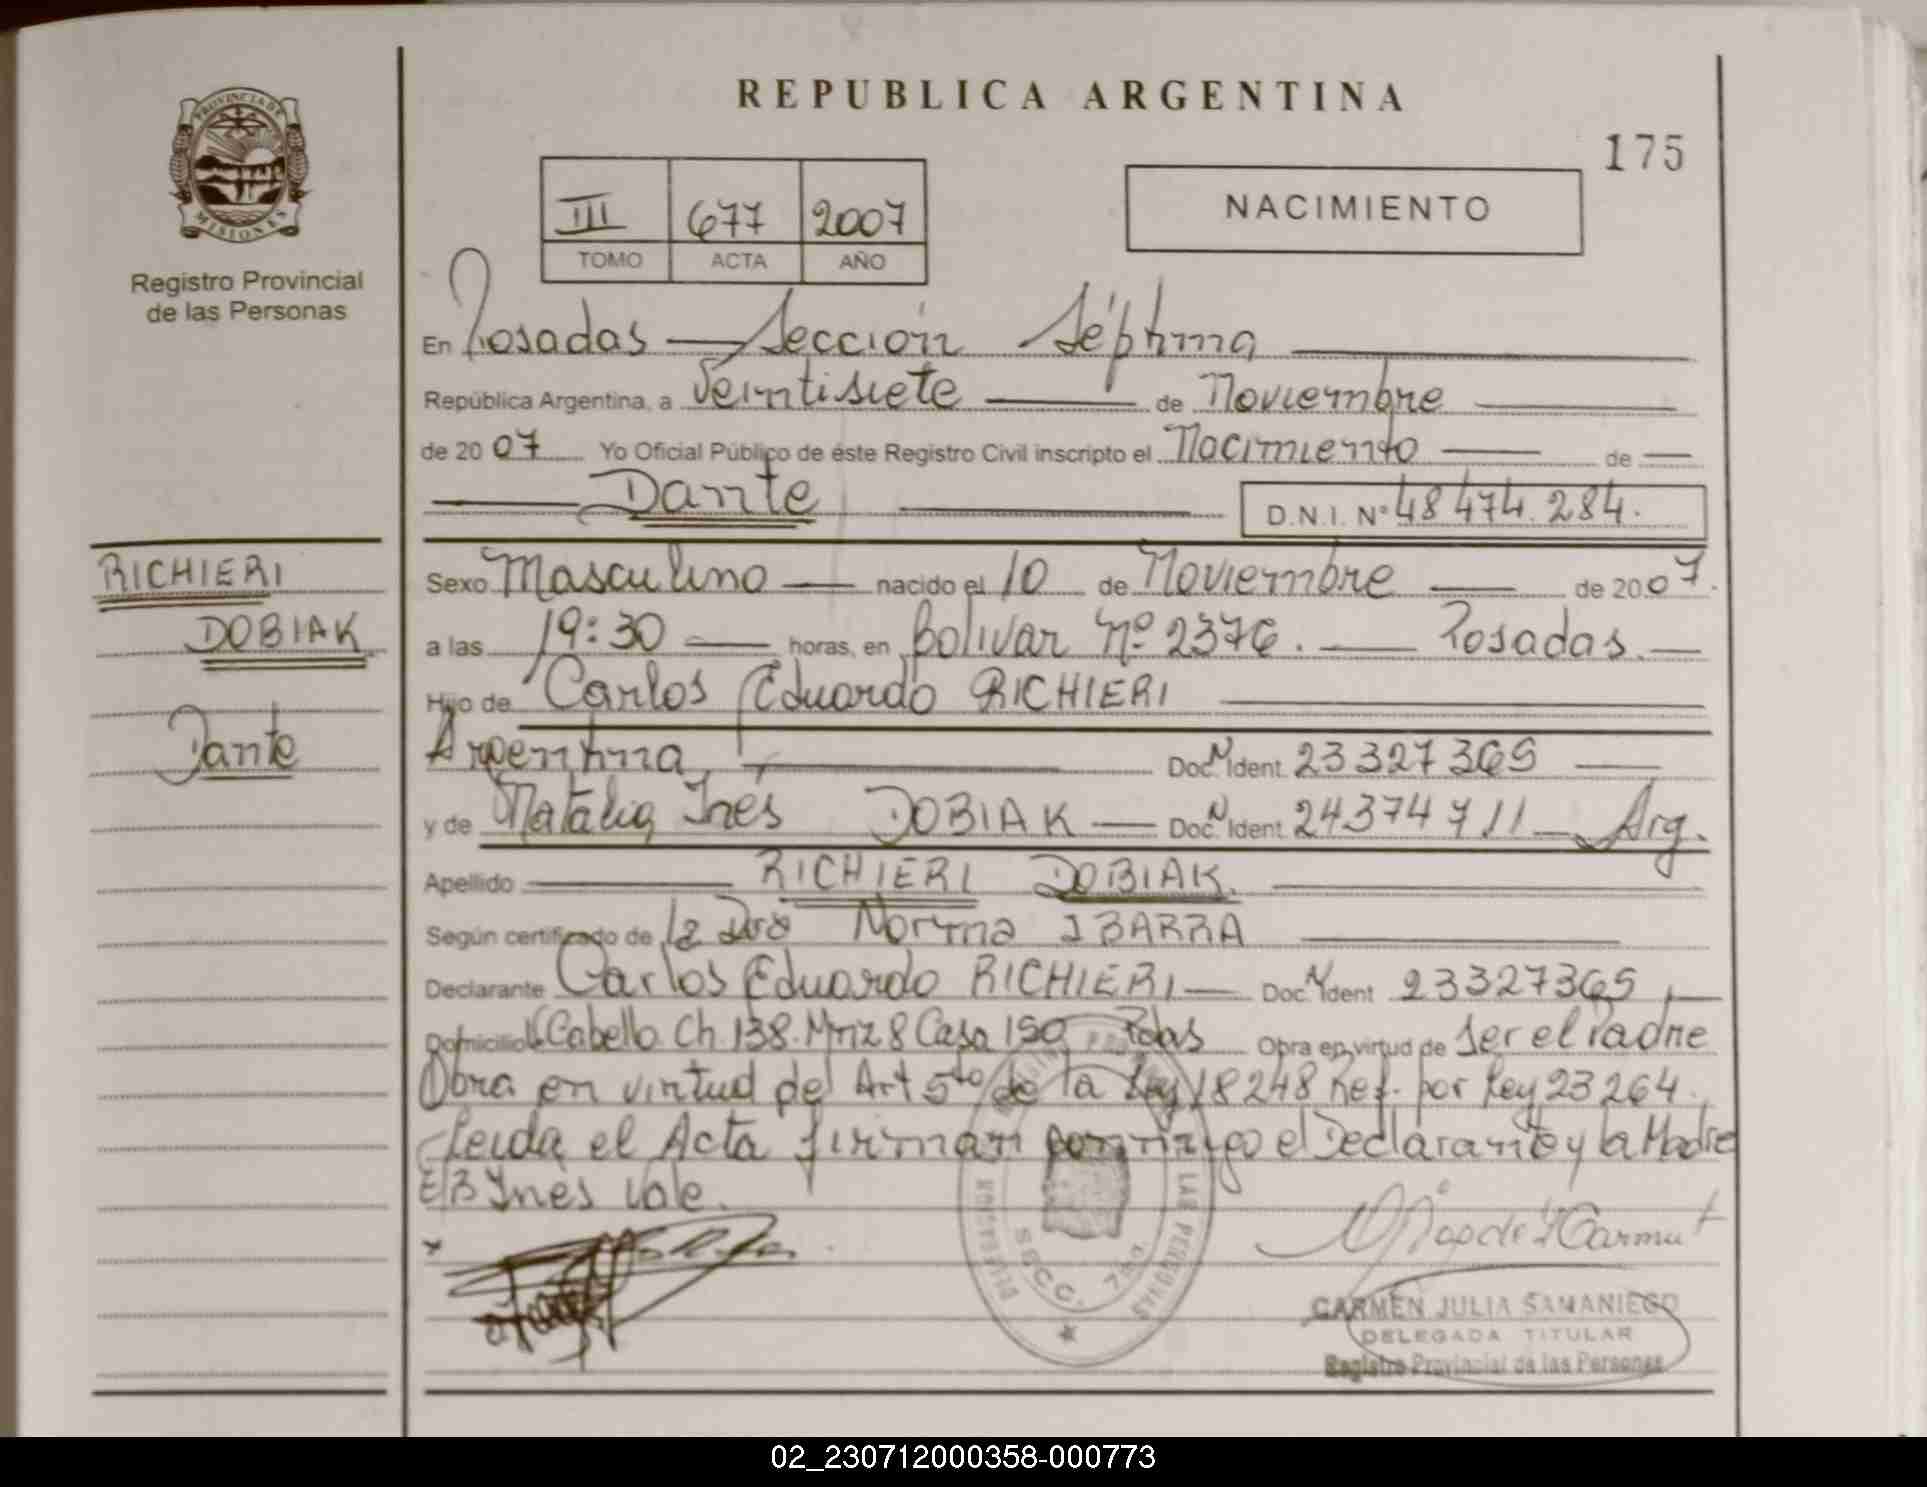 REPUBLICA ARGENTINA
175
PROVINCIA DE
MISIONES
Registro Provincial
de las Personas
III 677 2007
TOMO ACTA AÑO
NACIMIENTO
En Posadas — Sección Séptima
República Argentina, a Veintisiete — de Noviembre —
de 2007 Yo Oficial Público de éste Registro Civil inscripto el Nacimiento — de —
— Dante — D.N.I. Nº 48 474.284.
RICHIERI
DOBIAK
Dante
Sexo Masculino — nacido el 10 de Noviembre — de 2007.
a las 19:30 — horas, en Bolivar Nº 2376. — Posadas. —
Hijo de Carlos Eduardo RICHIERI —
Argentina — Doc. N Ident. 23 327 365 —
y de Natalia Inés DOBIAK — Doc. N Ident. 24374711 — Arg.
Apellido — RICHIERI DOBIAK. —
Según certificado de la Dra Norma IBARRA —
Declarante Carlos Eduardo RICHIERI — Doc. N Ident. 23327365 —
Domicilio Cabello Ch. 138. Mnz 8 Casa 150 Pdas Obra en virtud de Ser el Padre
Obra en virtud del Art 5to de la Ley 18248 Ref. por Ley 23264.
Leida el Acta firman conmigo el Declarante y la Madre
E/R Ines Vale.
SECC. 7ma.
LAS PERSONAS
CARMEN JULIA SAMANIEGO
DELEGADA TITULAR
Registro Provincial de las Personas
02_230712000358-000773